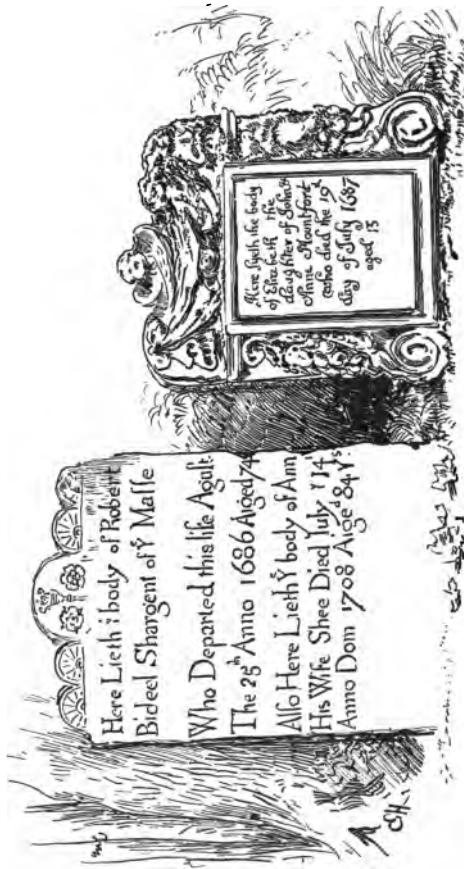 Here Lieth ẙ body of Robert
Bideel Shargent of Ẏ Masse
Who Departed this life Agust
The 25th Anno 1686 Aiged 74
Also Here Lieth ẙ body of Ann
His Wife Shee Died July ẙ 14
Anno Dom 1708 Aiged 84 Yrs
Here lyeth the body
of Elizabeth the
daughter of John &
Anne Mountfort
who died the 19th
day of July 1687
aged 13